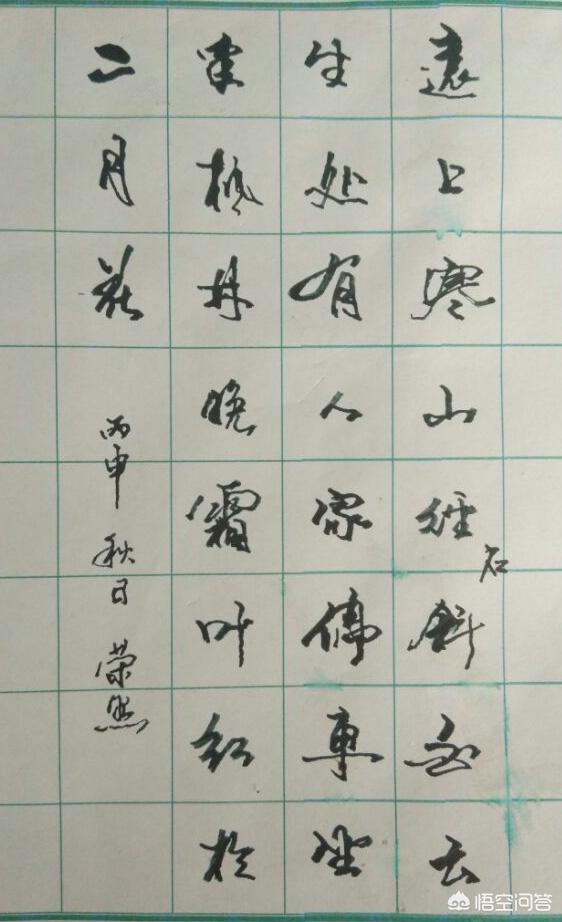 遠上寒山径斜白云
石
生处有人家停車坐
爱枫林晚霜叶红於
二月花
丙申 秋日 荣
悟空问答